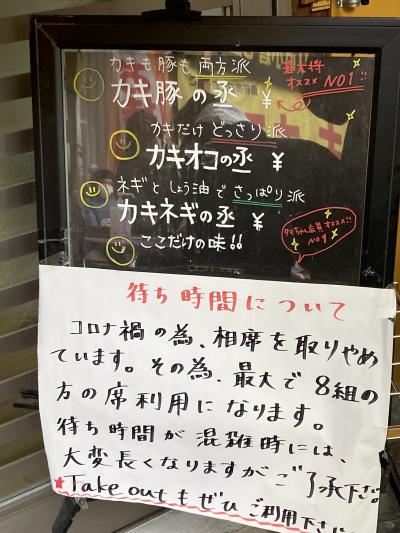 カキも豚も両方派
カキ豚の丞 ¥
若大将
オススメ
NO1!!
カキだけどっさり派
カキオコの丞 ¥
ネギとしょう油でさっぱり派
カキネギの丞 ¥
タマちゃん店員オススメ!!
NO1
ここだけの味!!
待ち時間について
コロナ禍の為、相席を取りやめ
ています。その為、最大で8組の
方の席利用になります。
待ち時間が混雑時には、
大変長くなりますがご了承下さい。
★Take outもぜひご利用下さい